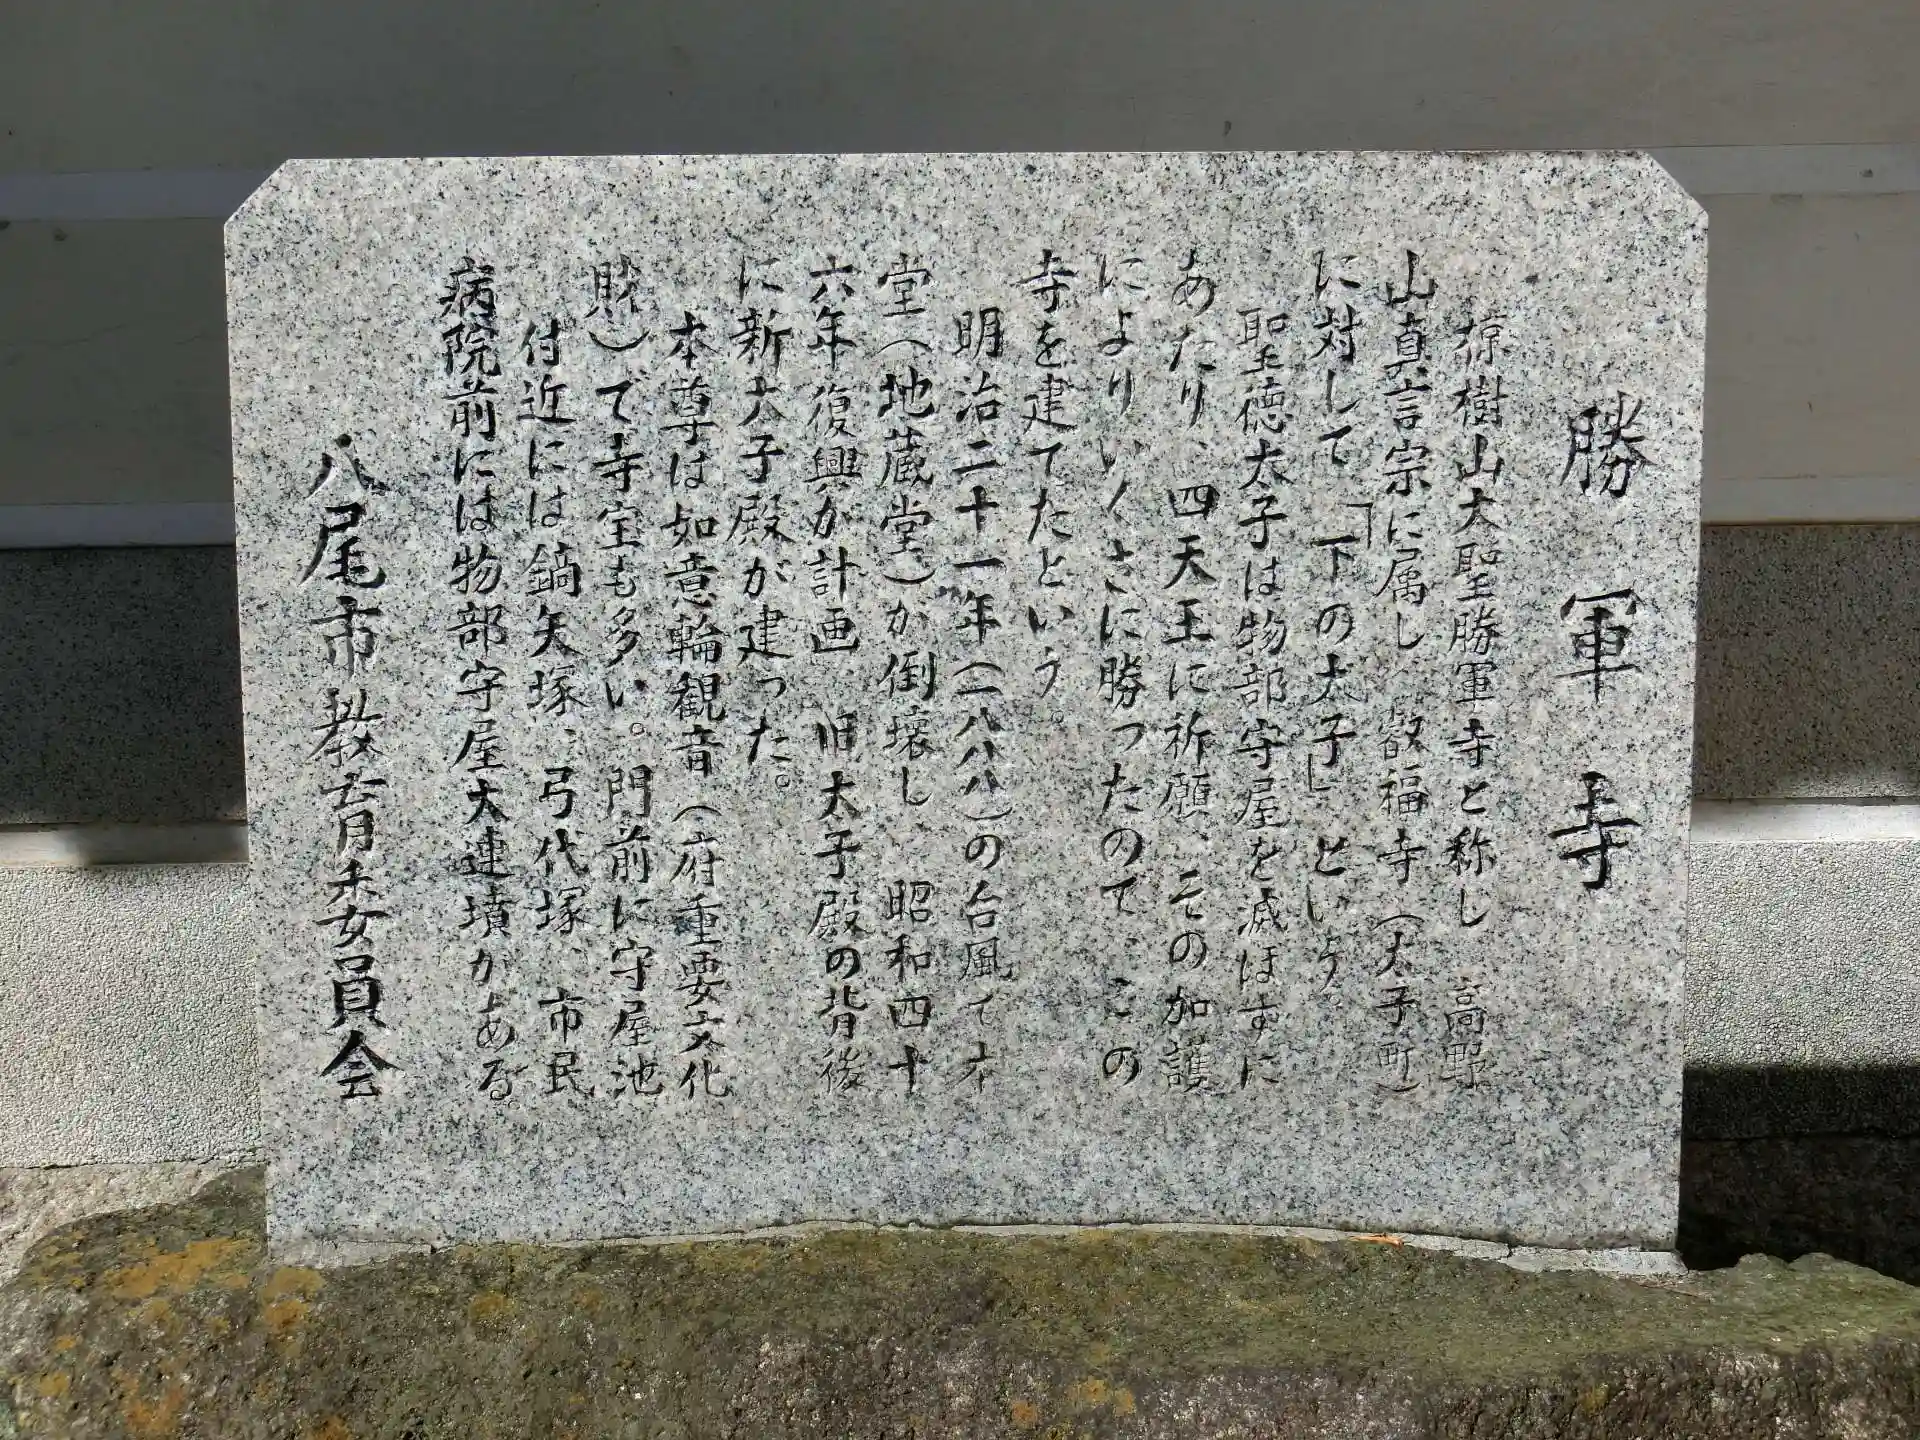 勝軍寺
椋樹山大聖勝軍寺と称し 高野
山真言宗に属し 叡福寺(太子町)
に対して「下の太子」という。
聖徳太子は物部守屋を滅ぼすに
あたり、四天王に祈願、その加護
によりいくさに勝ったので、この
寺を建てたという。
明治二十一年(一八八八)の台風で本
堂(地蔵堂)が倒壊し、昭和四十
六年復興が計画 旧太子殿の背後
に新太子殿が建った。
本尊は如意輪観音(府重要文化
財)で寺宝も多い。門前に守屋池
付近には鏑矢塚、弓代塚、市民
病院前には物部守屋大連墳がある。
八尾市教育委員会